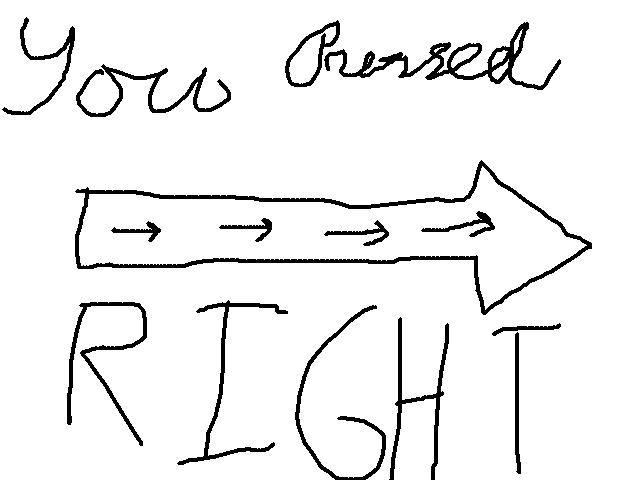 You Pressed
RIGHT